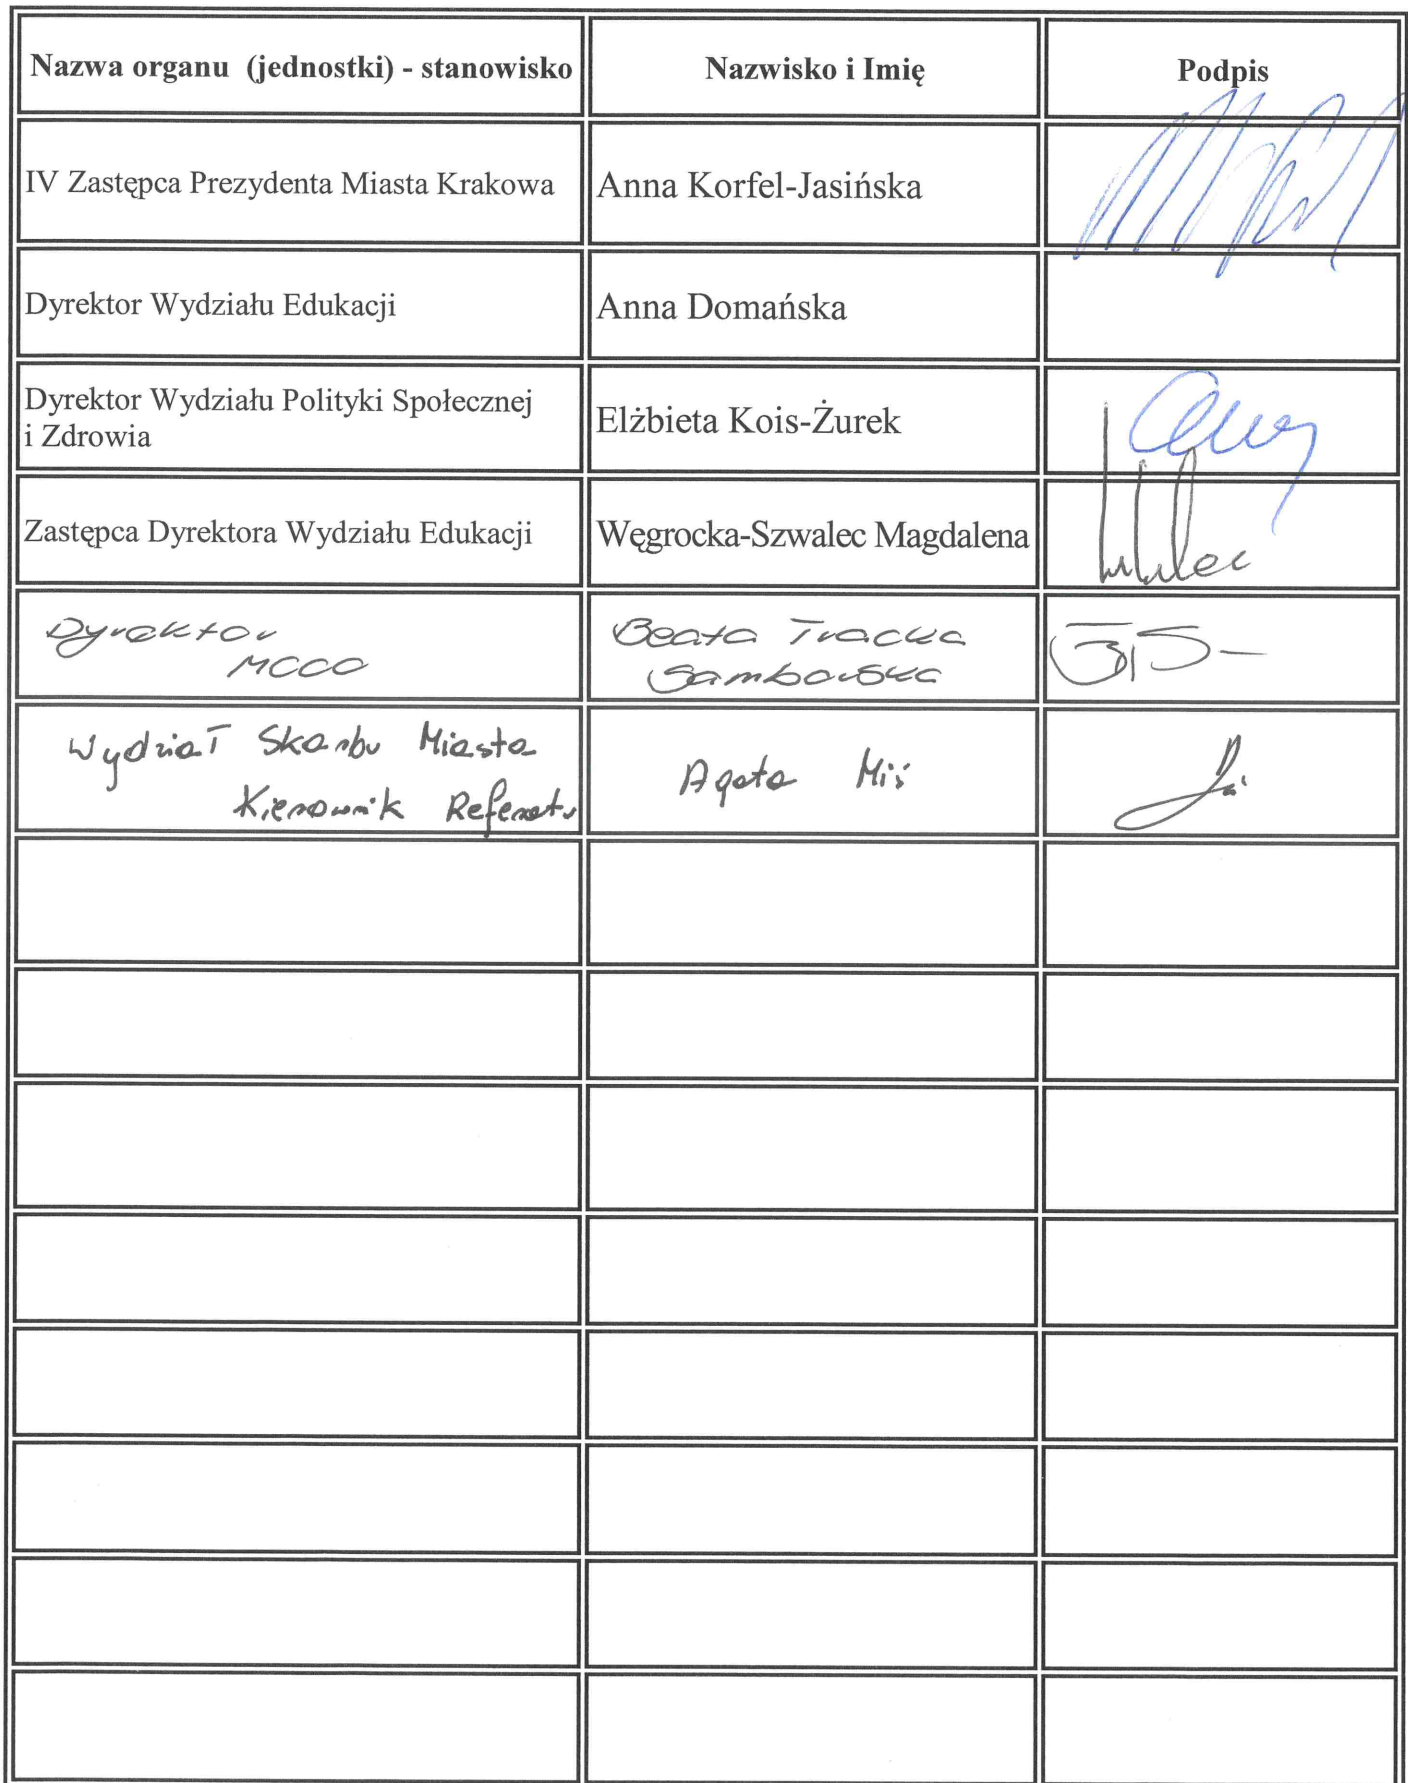 Nazwa organu (jednostki) - stanowisko Nazwisko i Imię Podpis
IV Zastępca Prezydenta Miasta Krakowa Anna Korfel-Jasińska
Dyrektor Wydziału Edukacji Anna Domańska
Dyrektor Wydziału Polityki Społecznej
i Zdrowia
Elżbieta Kois-Żurek
Zastępca Dyrektora Wydziału Edukacji Węgrocka-Szwalec Magdalena
Dyrektor
MCOO
Beata Tracka
Samborska
Wydział Skarbu Miasta
Kierownik Referatu
Agata Miś